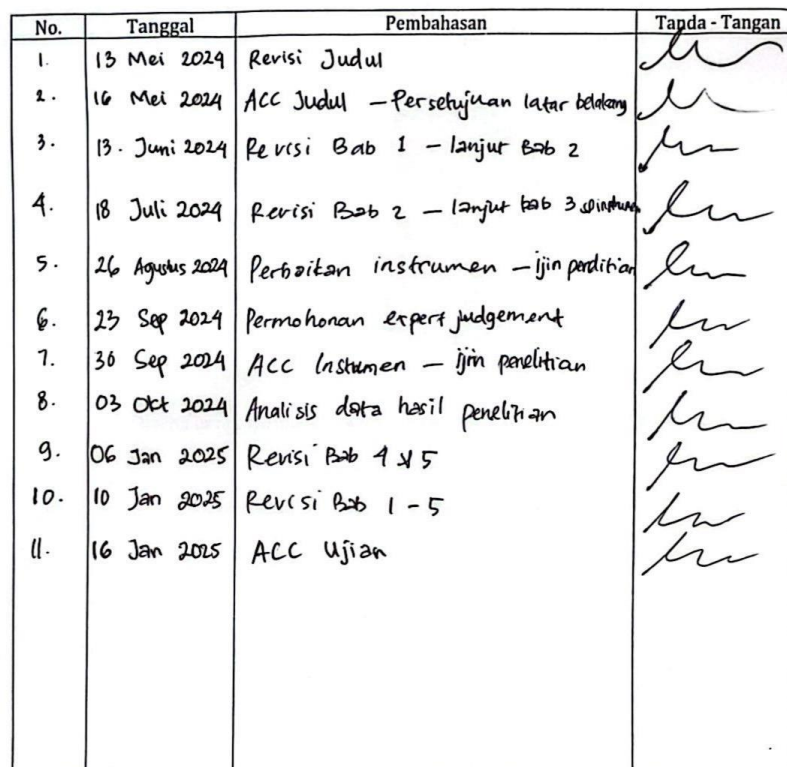 No. Tanggal Pembahasan Tanda - Tangan
1. 13 Mei 2024 Revisi Judul
2. 16 Mei 2024 ACC Judul - Persetujuan latar belakang
3. 13. Juni 2024 Revisi Bab 1 - lanjut Bab 2
4. 18 Juli 2024 Revisi Bab 2 - lanjut bab 3
5. 26 Agustus 2024 Perbaikan instrumen - ijin
6. 23 Sep 2024 Permohonan expert judgement
7. 30 Sep 2024 ACC Instumen - ijin penelitian
8. 03 Okt 2024 Analisis data hasil penelitian
9. 06 Jan 2025 Revisi Bab 4 & 5
10. 10 Jan 2025 Revisi Bab 1 - 5
11. 16 Jan 2025 ACC Ujian